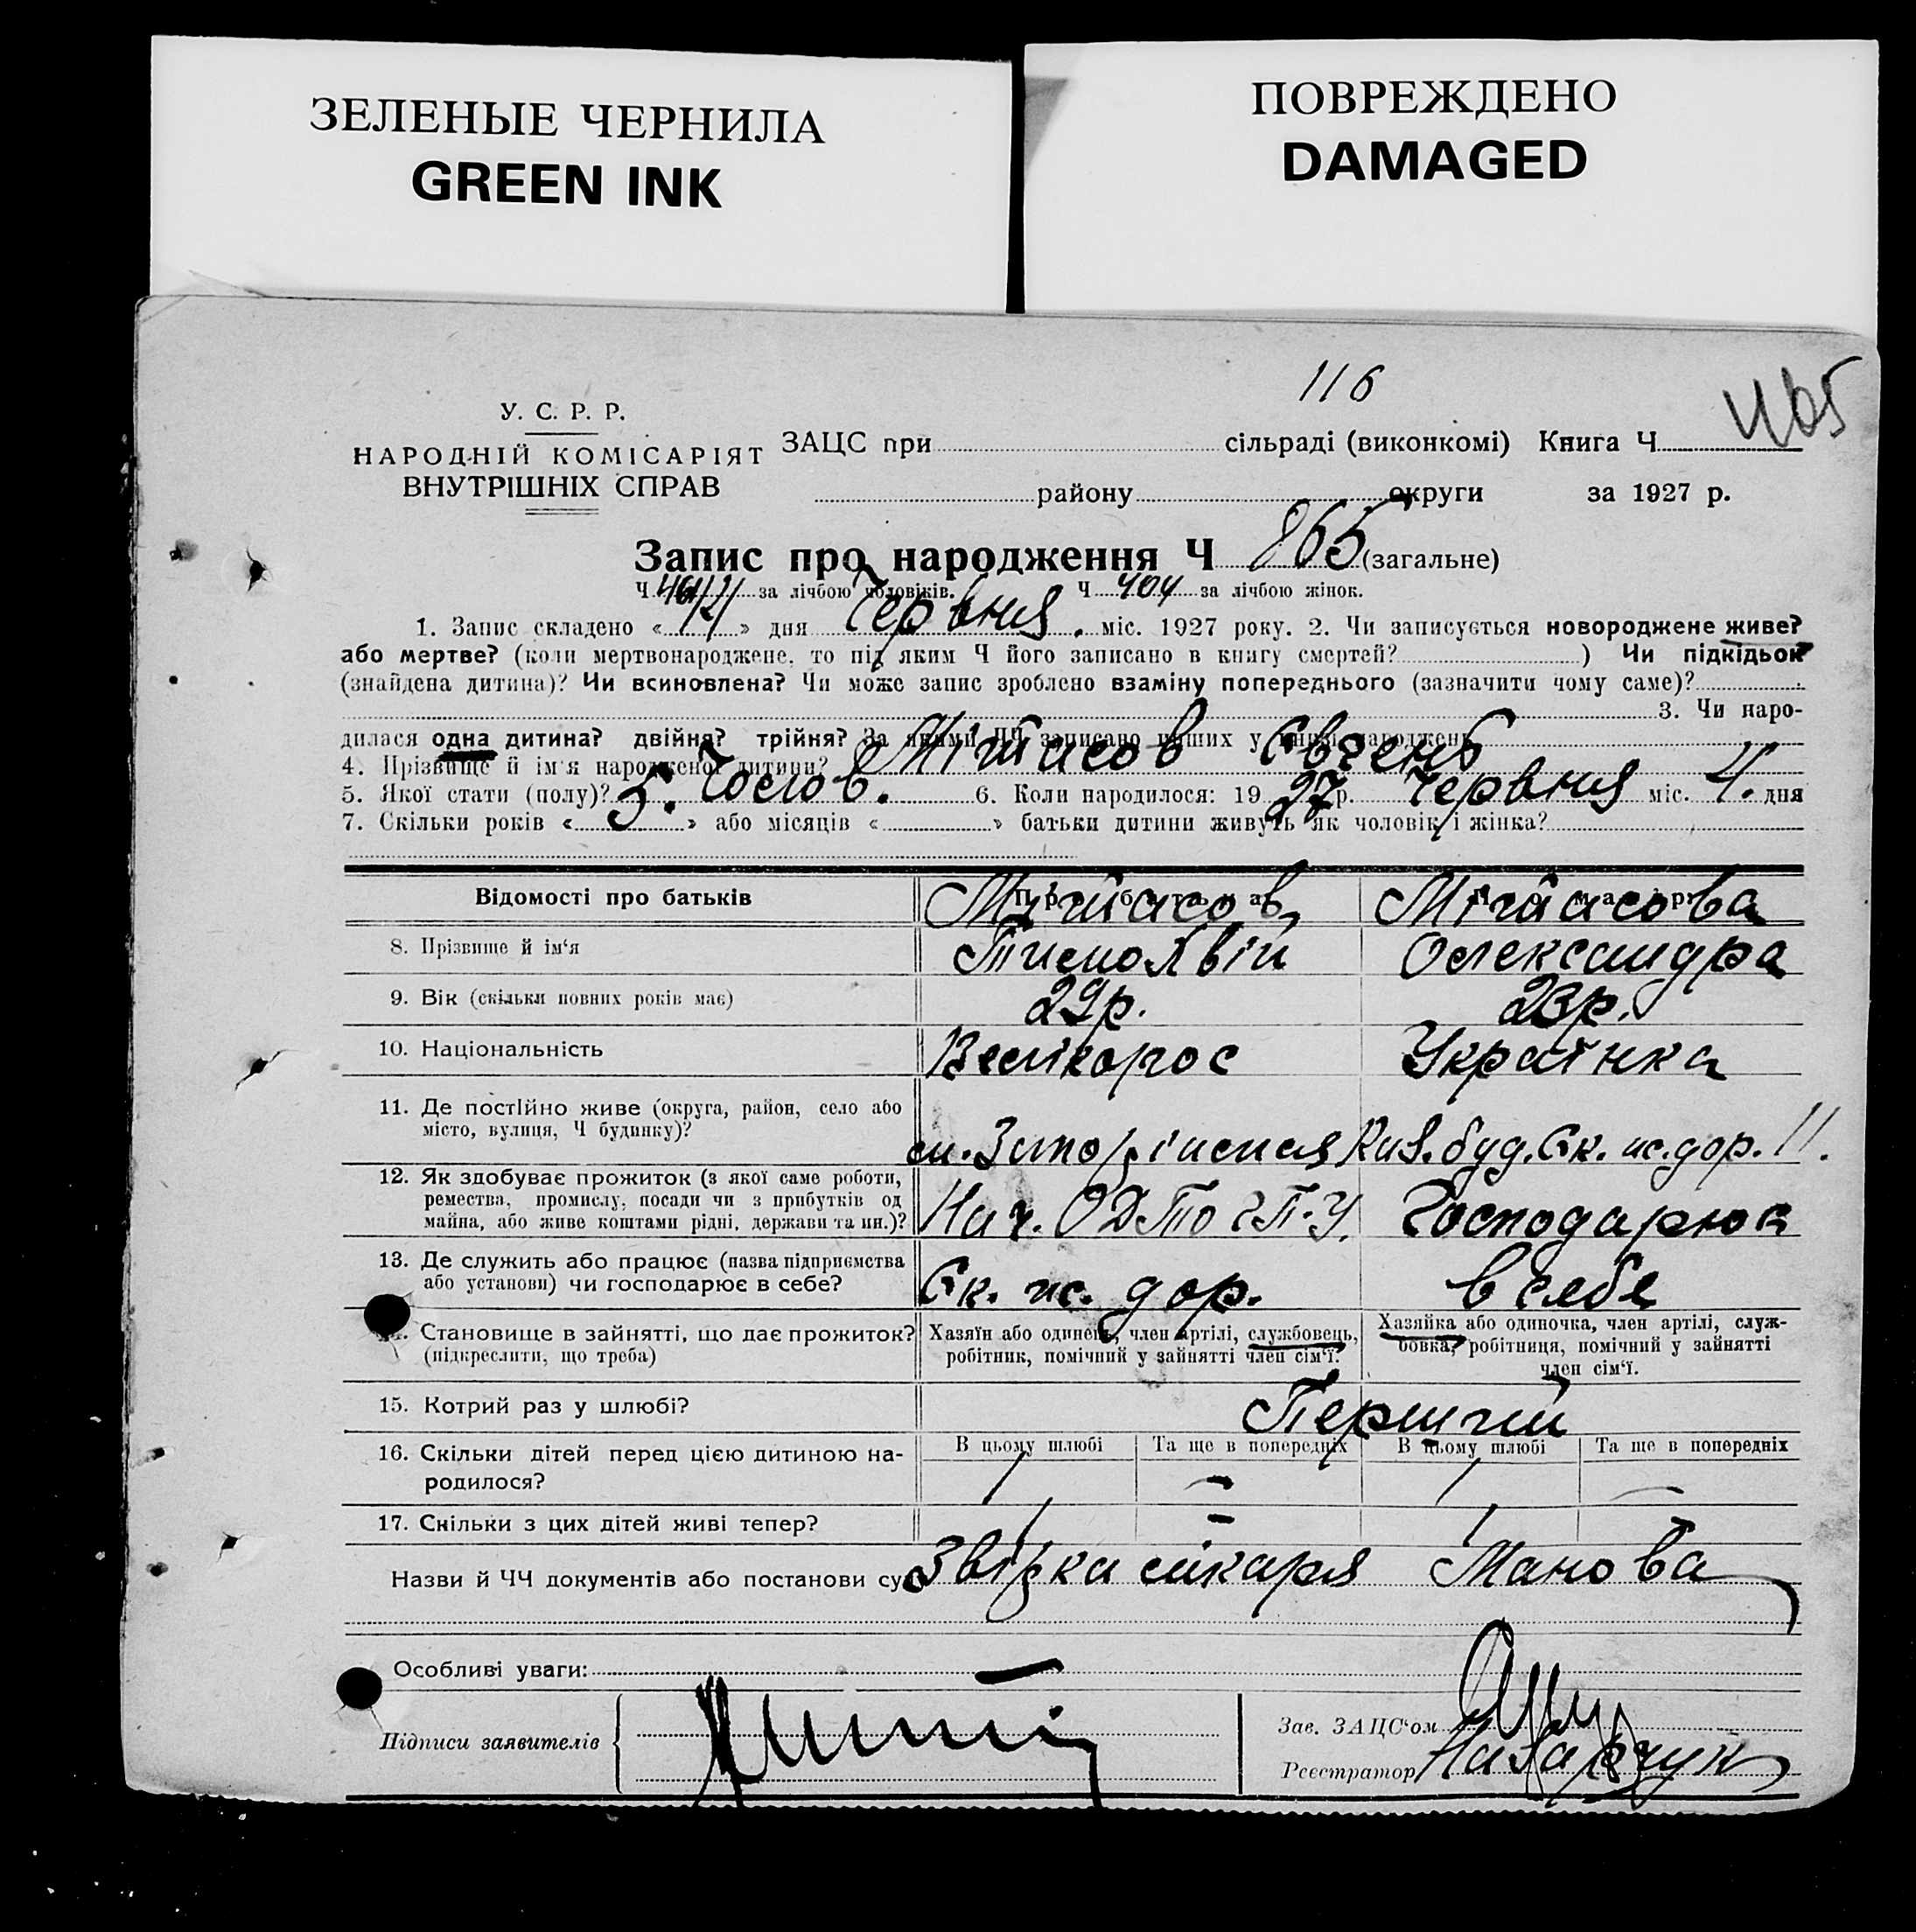 ЗЕЛЕНЫЕ ЧЕРНИЛА
GREEN INK
ПОВРЕЖДЕНО
DAMAGED
116
У. С. Р. Р.
НАРОДНІЙ КОМІСАРІЯТ
ВНУТРІШНІХ СПРАВ
ЗАЦС при сільраді (виконкомі) Книга Ч
району округи за 1927 р.
Запис про народження Ч 865 (загальне)
Ч 461 за лічбою чоловіків. Ч 404 за лічбою жінок.
1. Запис складено « 21 » дня Червня. міс. 1927 року. 2. Чи записується новороджене живе?
або мертве? (коли мертвонароджене, то під яким Ч його записано в книгу смертей? ) Чи підкідьок
(знайдена дитина)? Чи всиновлена? Чи може запис зроблено взаміну попереднього (зазначити чому саме)?
3. Чи наро-
дилася одна дитина? двійня? трійня? За якими ЧЧ записано інших у книзі народжень
4. Прізвище й ім'я народженої дитини? Євгень
5. Якої стати (полу)? Чолов. 6. Коли народилося: 1927 р. Червня міс. 4. дня
7. Скільки років « 5. » або місяців « » батьки дитини живуть як чоловік і жінка?
Відомості про батьків
Про батька
Про матір
8. Прізвище й ім'я Тимофвій Олександра
9. Вік (скільки повних років має) 29р. 23р.
10. Національність Велікорос Українка
11. Де постІйно живе (округа, район, село або
місто, вулиця, Ч будинку)?
буд. Єк. ж. дор. 11.
12. Як здобуває прожиток (з якої саме роботи,
ремества, промислу, посади чи з прибутків од
майна, або живе коштами рідні, держави та ин.)?
Нач. ОДТО ГПУ. Господарює
13. Де служить або працює (назва підприємства
або установи) чи господарює в себе?
Єк. ж. дор. в себе
Становище в зайнятті, що дає прожиток?
(підкреслити, що треба)
Хазяїн або одинець, член артілі, службовець,
робітник, помічний у зайнятті член сім'ї.
Хазяйка або одиночка, член артілі, служ-
бовка, робітниця, помічний у зайнятті
член сім'ї.
15. Котрий раз у шлюбі? Перший
16. Скільки дітей перед цією дитиною на-
родилося?
В цьому шлюбі Та ще в попередніх В цьому шлюбі Та ще в попередніх
1 – 1 –
17. Скільки з цих дітей живі тепер? 1 – 1 –
Назви й ЧЧ документів або постанови су Звірка лікаря Манова
Особливі уваги: —
Підписи заявителів
Зав. ЗАЦС'ом
Реєстратор